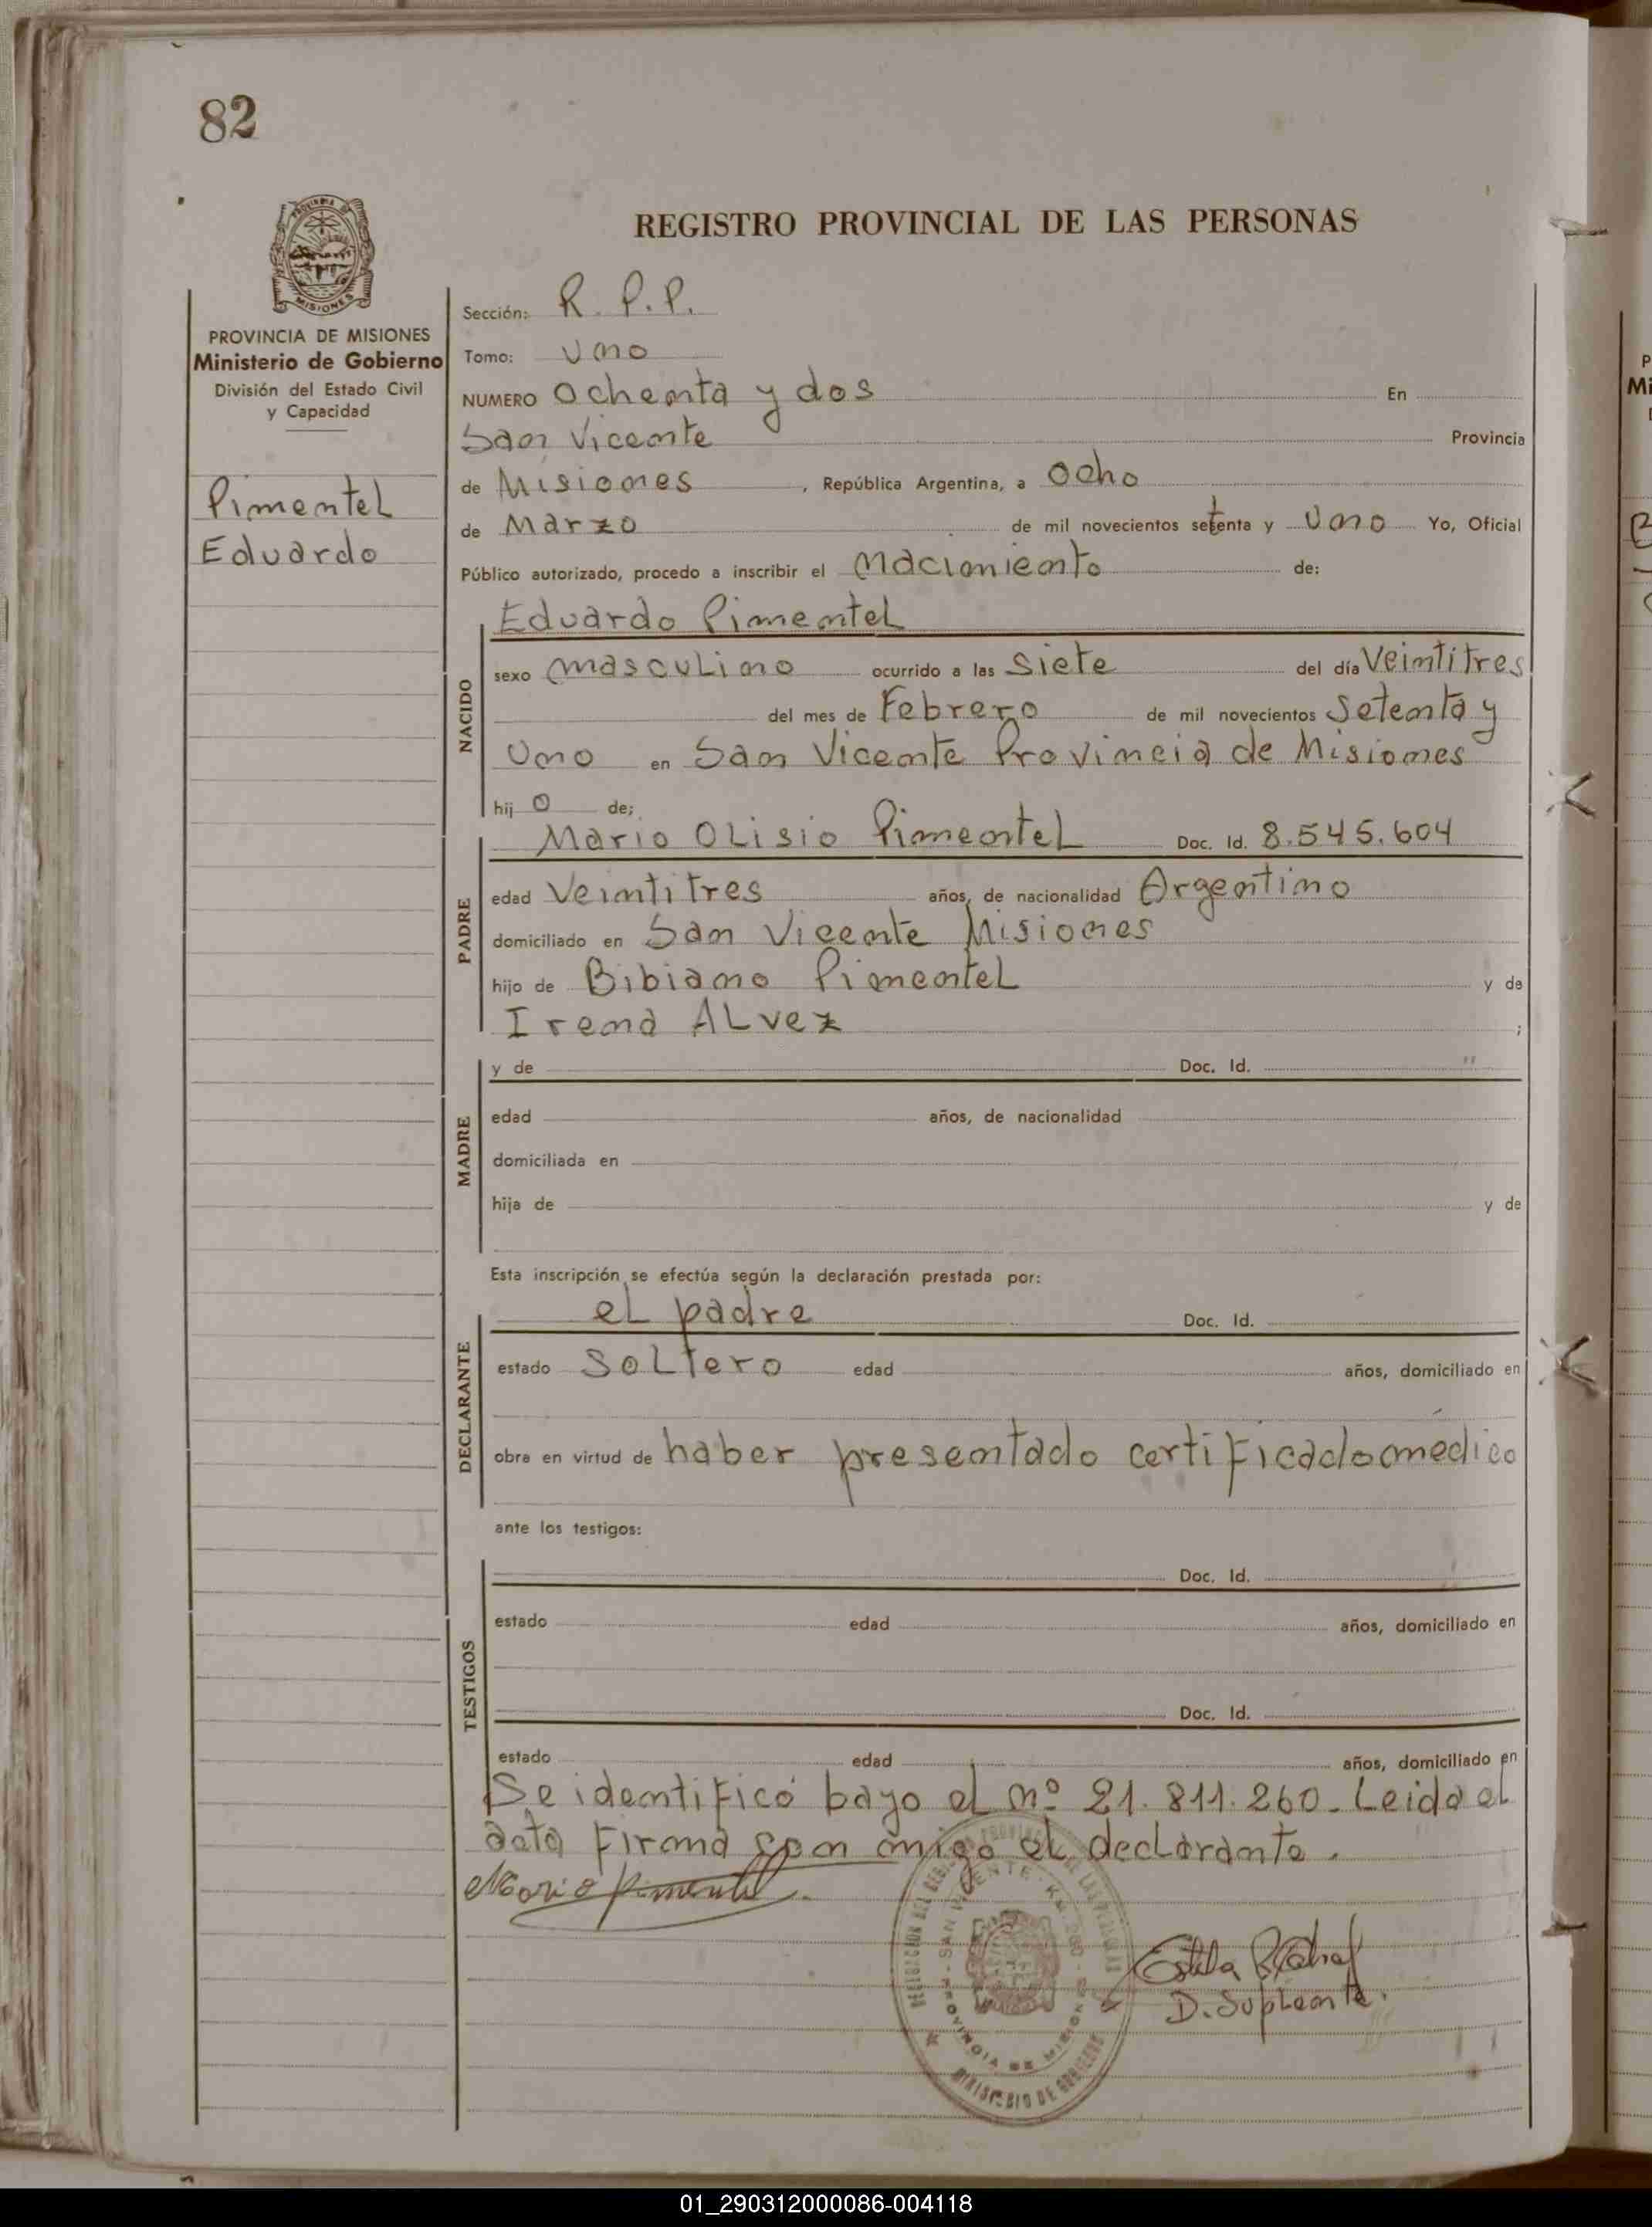 82
REGISTRO PROVINCIAL DE LAS PERSONAS
PROVINCIA DE MISIONES
Ministerio de Gobierno
División del Estado Civil
y Capacidad
Pimentel
Eduardo
Sección: R. P. P.
Tomo: Uno
NUMERO Ochenta y dos En
San Vicente Provincia
de Misiones, República Argentina, a Ocho
de Marzo de mil novecientos setenta y Uno Yo, Oficial
Público autorizado, procedo a inscribir el nacimiento de:
Eduardo Pimentel
NACIDO
sexo masculino ocurrido a las Siete del día Veintitres
del mes de Febrero de mil novecientos Setenta y
Uno en San Vicente Provincia de Misiones
hij o de;
PADRE
Mario Olisio Pimentel Doc. Id. 8.545.604
edad Veintitres años, de nacionalidad Argentino
domiciliado en San Vicente Misiones
hijo de Bibiano Pimentel y de
Irena Alvez ;
MADRE
y de Doc. Id. "
edad años, de nacionalidad
domiciliada en
hija de y de
Esta inscripción se efectúa según la declaración prestada por:
DECLARANTE
el padre Doc. Id.
estado Soltero edad años, domiciliado en
obra en virtud de haber presentado certificado médico
ante los testigos:
TESTIGOS
Doc. Id.
estado edad años, domiciliado en
Doc. Id.
estado edad años, domiciliado en
Se identificó bayo el nº 21.811.260. Leida el
acta firma con migo el declarante.
Mario Pimentel
D. Suplente.
SAN VICENTE - KM. 260 - PROVINCIA DE MISIONES
MINISTERIO DE GOBIERNO
01_290312000086-004118